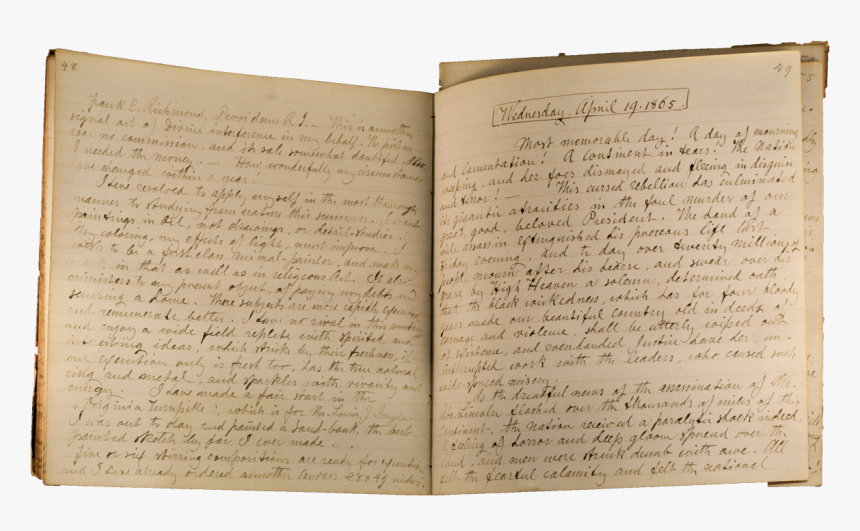 48
Frank E. Richmond, Providence R.I. — This is another
signal act of Divine interference in my behalf. The picture
was no commission, and its sale somewhat doubtful.
I needed the money. — How wonderfully my circumstances
have changed within a year!
I have resolved to apply myself in the most thorough
manner to studying from nature this summer. I want
paintings in oil, not drawings, or detail-studies.
My coloring, my effects of light, must improve. I
want to be a first class animal-painter, and make my
mark in that as well as in religious Art. It also
ministers to my present object, of paying my debts and
securing a home. These subjects are more rapidly executed
and remunerate better. I have no rival in this country
and enjoy a wide field replete with spirited and
interesting ideas, which strike by their freshness, if
our execution only is fresh too, has the true natural
ring and metal, and sparkles with vivacity and
energy. I have made a fair start in the
"Virginia turnpike", which is for
I was out to day and painted a sand-bank, the best
painted sketch by far I ever made.
Five or six stirring compositions are ready for execution
and I have already ordered another canvas
49
Wednesday, April 19. 1865.
Most memorable day! A day of mourning
and lamentation! A continent in tears! The Nation
weeping - and her foes dismayed and fleeing in disguise
and terror! — This cursed rebellion has culminated
its gigantic atrocities in the foul murder of our
great, good, beloved President. The hand of a
vile assassin extinguished his precious life last
Friday evening, and to day over twenty millions of
people mourn after his hearse, and swear over his
grave by High Heaven a solemn, determined oath
that the black wickedness, which has for four bloody
years made our beautiful country old in deeds of
carnage and violence, shall be utterly wiped out
of existence, and even handed Justice have her un-
interrupted work with the leaders, who caused such
wide-spread misery.
As the dreadful news of the assassination of the
Mr. Lincoln flashed over the thousands of miles of this
Continent, the Nation received a paralytic shock indeed.
A feeling of horror and deep gloom spread over the
land, and men were struck dumb with awe. All
felt the fearful calamity and felt the national